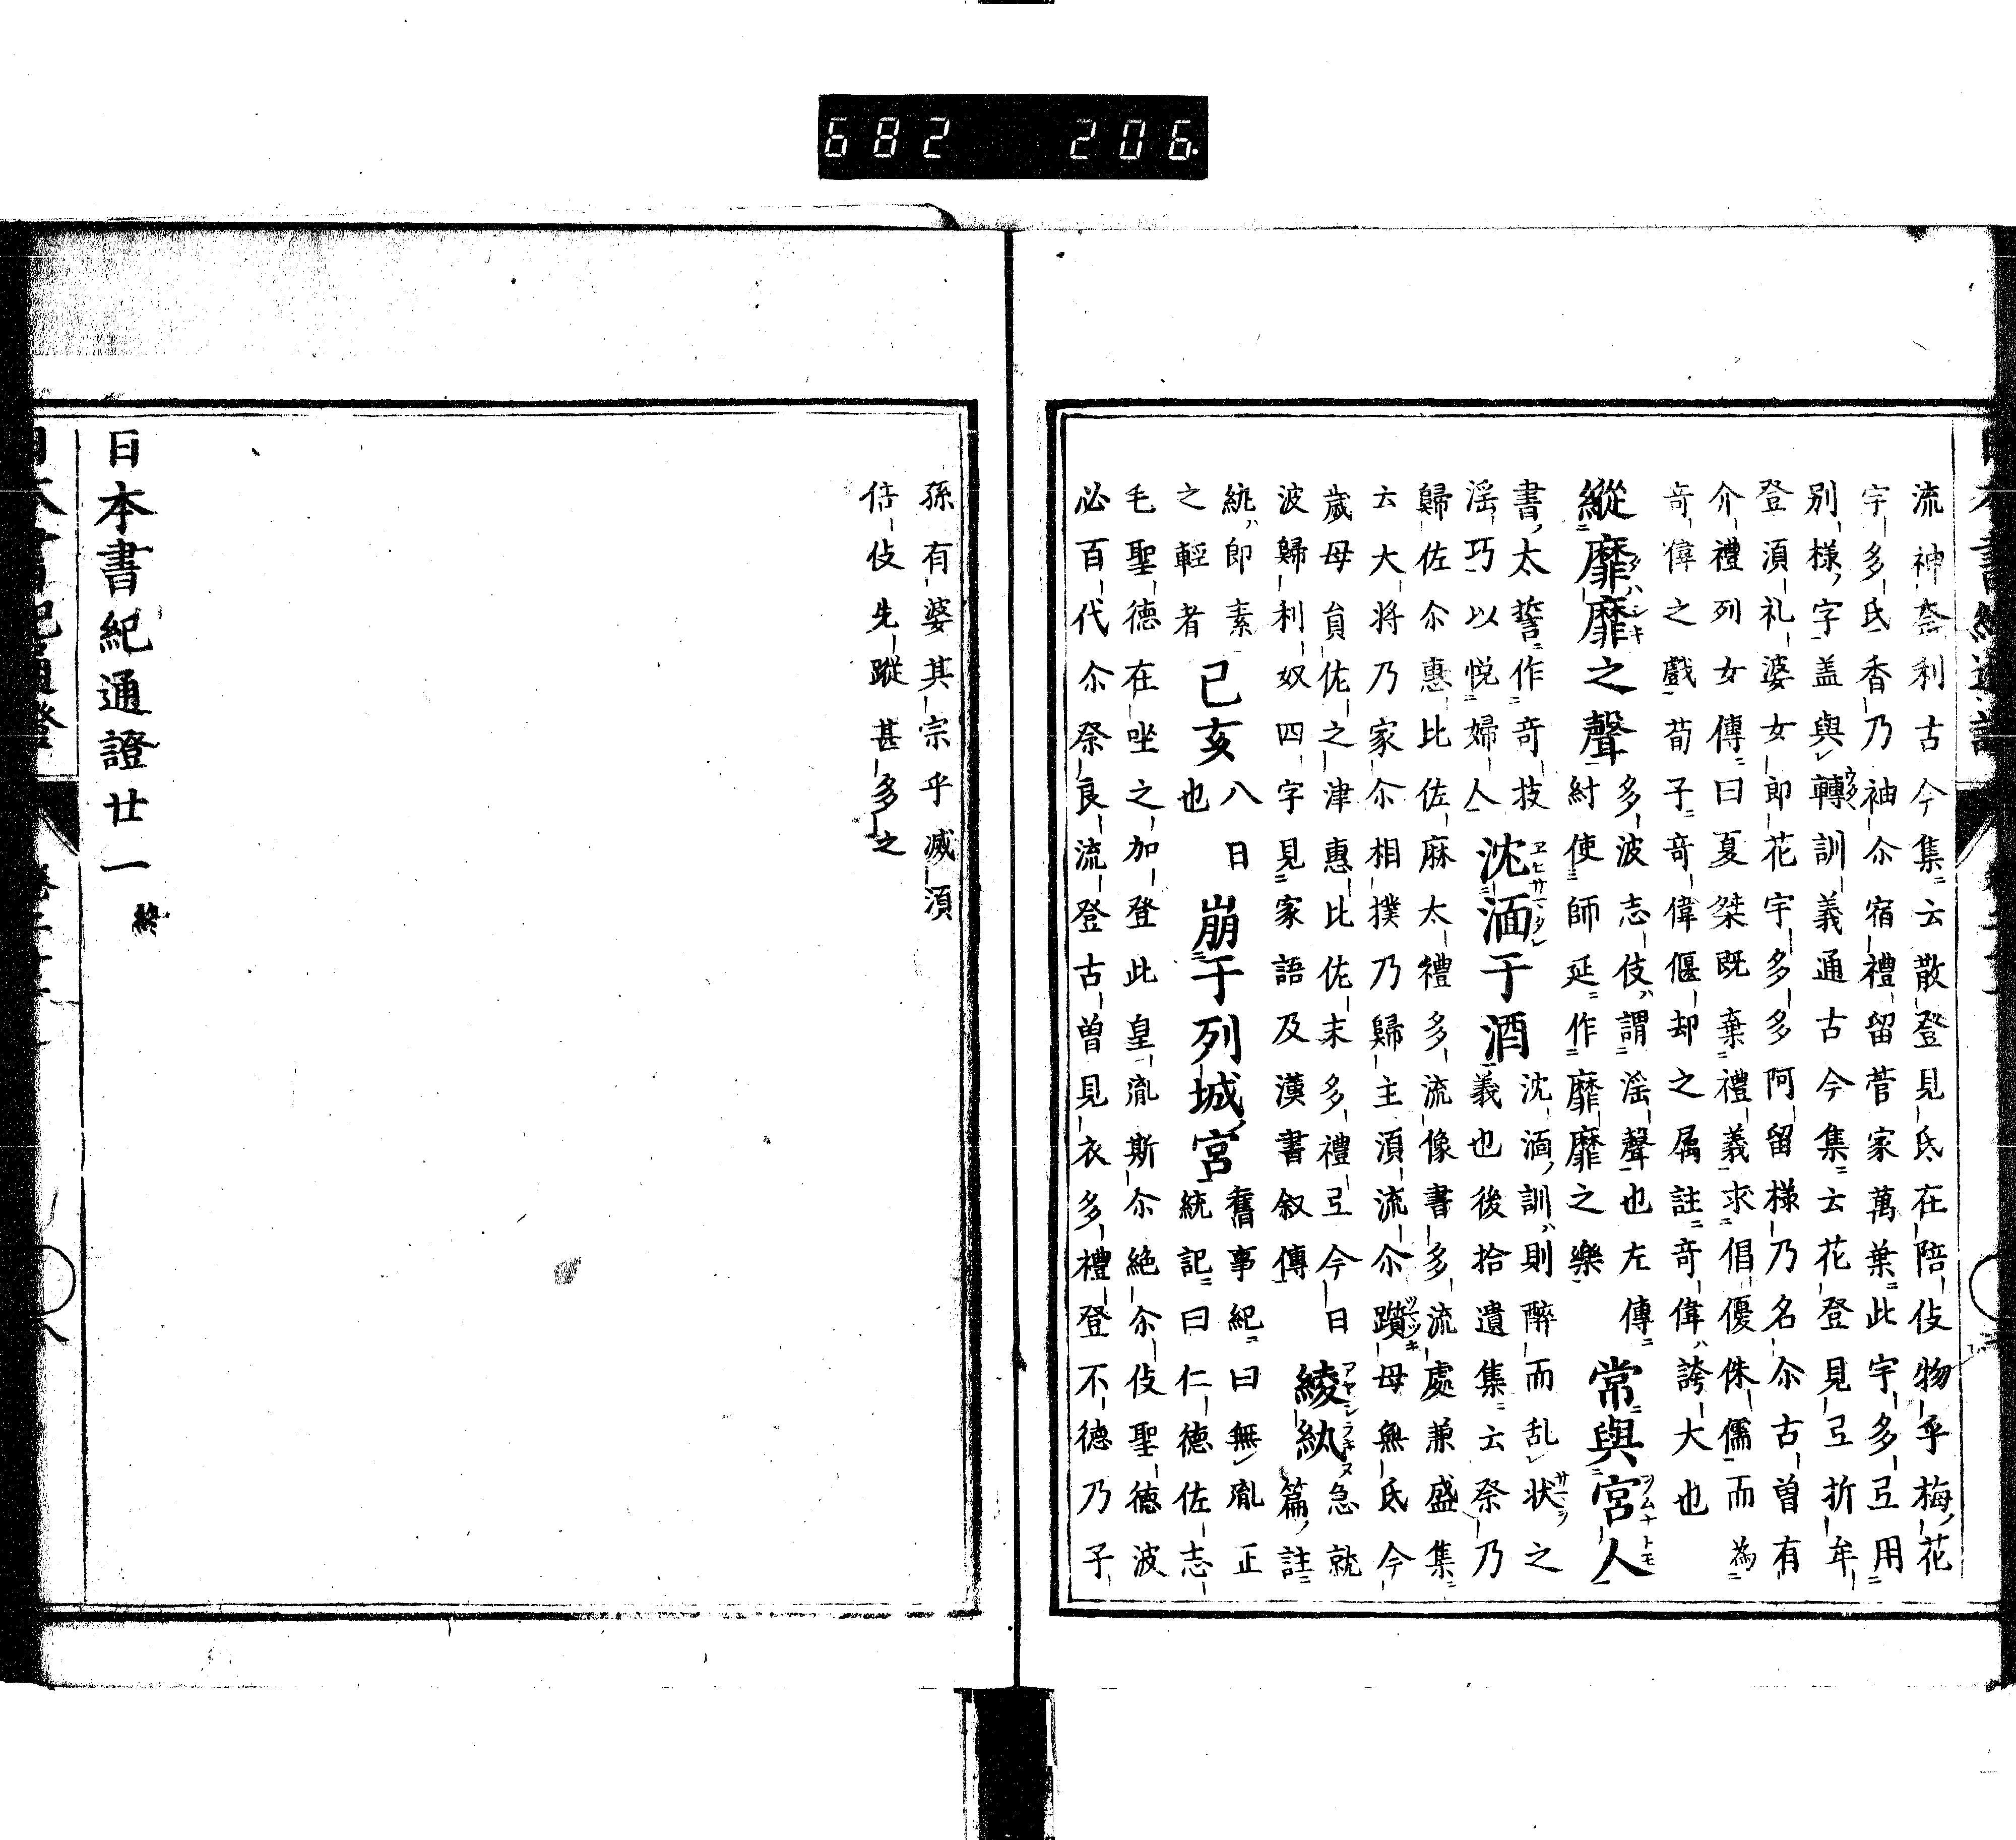 682 206
流神奈利古今集云散登見氐在陪伎物乎梅花
宇多氐香乃袖尓宿禮留菅家萬葉此宇多弖用
別様字盖與轉訓義通古今集云花登見弖折牟
登湏礼婆女即花宇多多阿留様乃名尓古曽有
介禮列女傳曰夏桀既棄禮義求倡優侏儒而為
奇偉之戲荀子奇偉偃却之属註奇偉誇大也
縱靡靡之聲
多波志伎ハ謂滛聲也左傳
紂使師延作靡靡之樂
常與宮人
書太誓作奇技
滛巧以悦婦人
沈湎于酒
沈湎訓ハ則醉而乱状之
義也後拾遺集云奈乃
歸佐尓惠比佐麻太禮多流像書多流處兼盛集
云大将乃家尓相撲乃歸主湏流尓躓母無氐今
歳母負佐之津惠比佐末多禮弖今日
波歸利奴四字見家語及漢書叙傳
綾紈
急就
篇註
紈ハ即素
之輕者
己亥
八日
也
崩于列城宮
舊事紀曰無胤正
統記曰仁德佐志
毛聖德在坐之加登此皇胤斯尓絶尓伎聖德波
必百代尓奈良流登古曽見衣多禮登不德乃子
孫有婆其宗乎滅湏
倍伎先蹤甚多之
日本書紀通證廿一 終